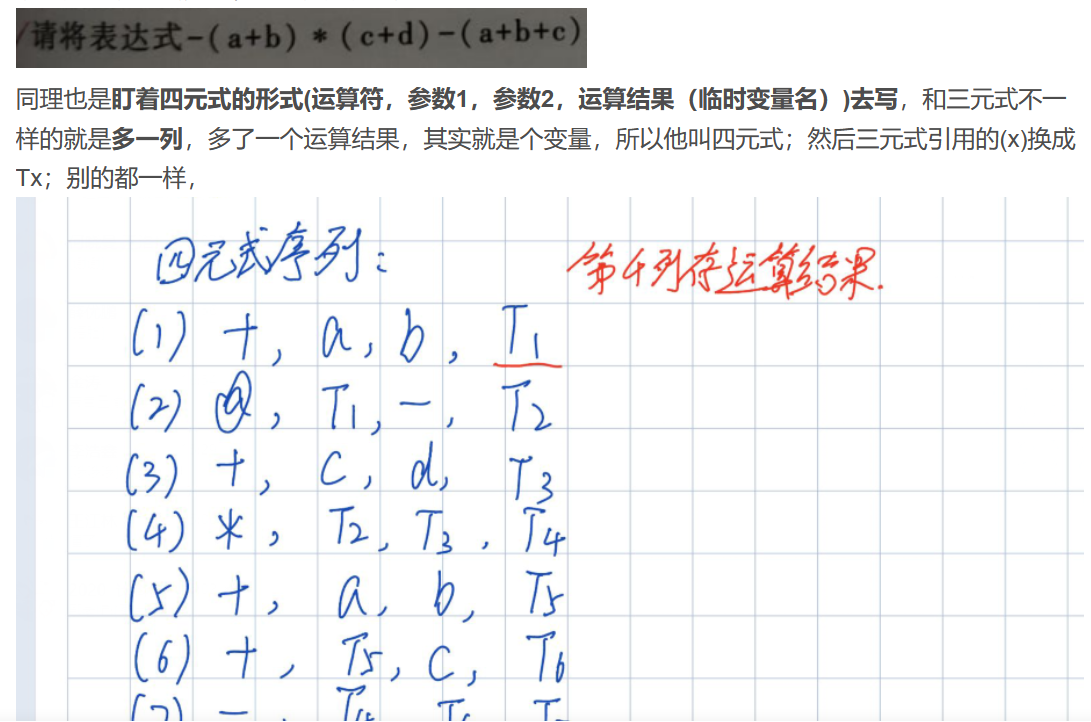 请将表达式-(a+b)*(c+d)-(a+b+c)
同理也是盯着四元式的形式(运算符，参数1，参数2，运算结果（临时变量名）)去写，和三元式不一
样的就是多一列，多了一个运算结果，其实就是个变量，所以他叫四元式；然后三元式引用的(x)换成
Tx；别的都一样，
四元式序列：
第4列存运算结果.
(1) +, a, b, T1
(2) @, T1, -, T2
(3) +, c, d, T3
(4) *, T2, T3, T4
(5) +, a, b, T5
(6) +, T5, c, T6
(7) -, T4,